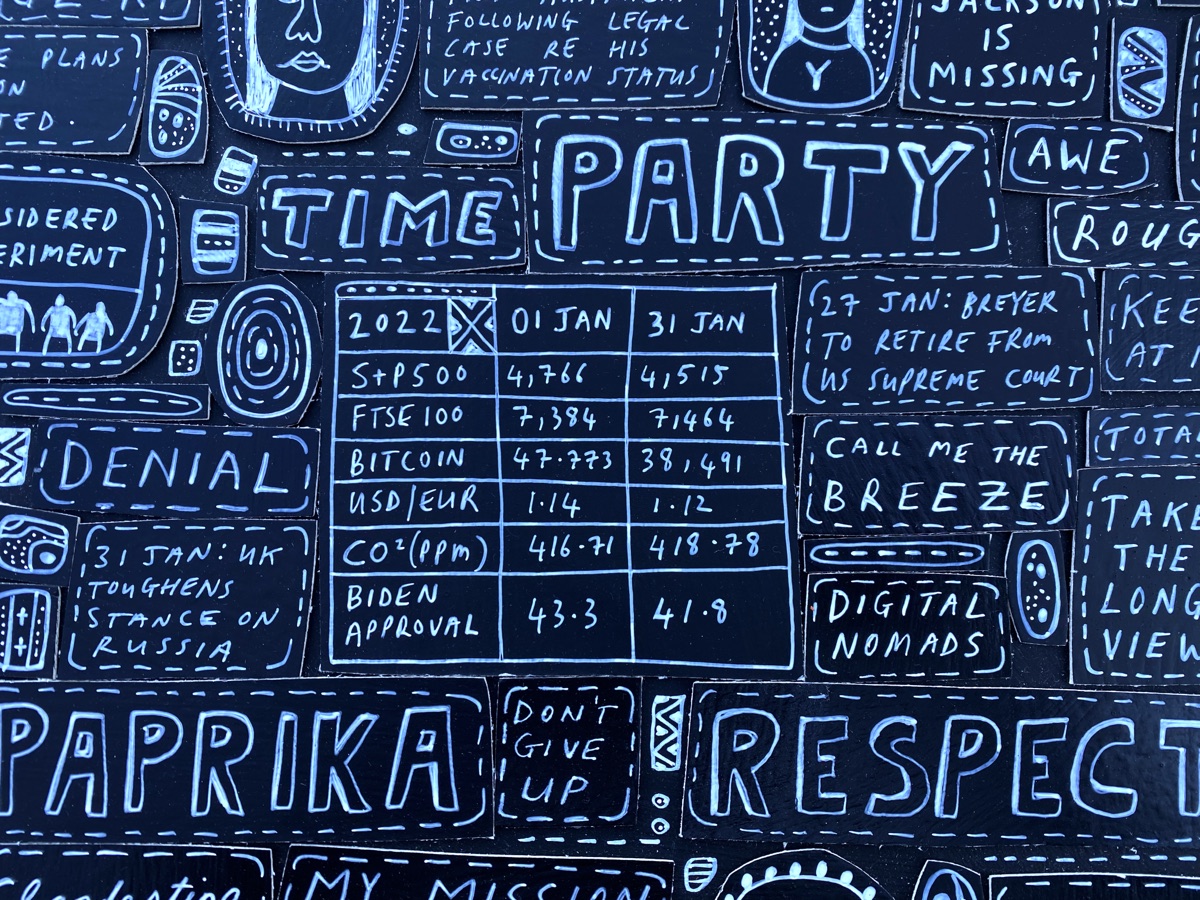 PLANS
ON
TED.
FOLLOWING LEGAL
CASE RE HIS
VACCINATION STATUS
JACKSON
IS
MISSING
TIME
PARTY
AWE
SIDERED
ERIMENT
ROUG
2022 01 JAN 31 JAN
S+P500 4,766 4,515
FTSE 100 7,384 7,464
BITCOIN 47.773 38,491
USD/EUR 1.14 1.12
CO²(ppm) 416.71 418.78
BIDEN
APPROVAL 43.3 41.8
27 JAN: BREYER
TO RETIRE FROM
US SUPREME COURT
KEE
AT
DENIAL
CALL ME THE
BREEZE
TOTA
31 JAN: UK
TOUGHENS
STANCE ON
RUSSIA
DIGITAL
NOMADS
TAKE
THE
LONG
VIEW
PAPRIKA
DON'T
GIVE
UP
RESPECT
MY MISSION